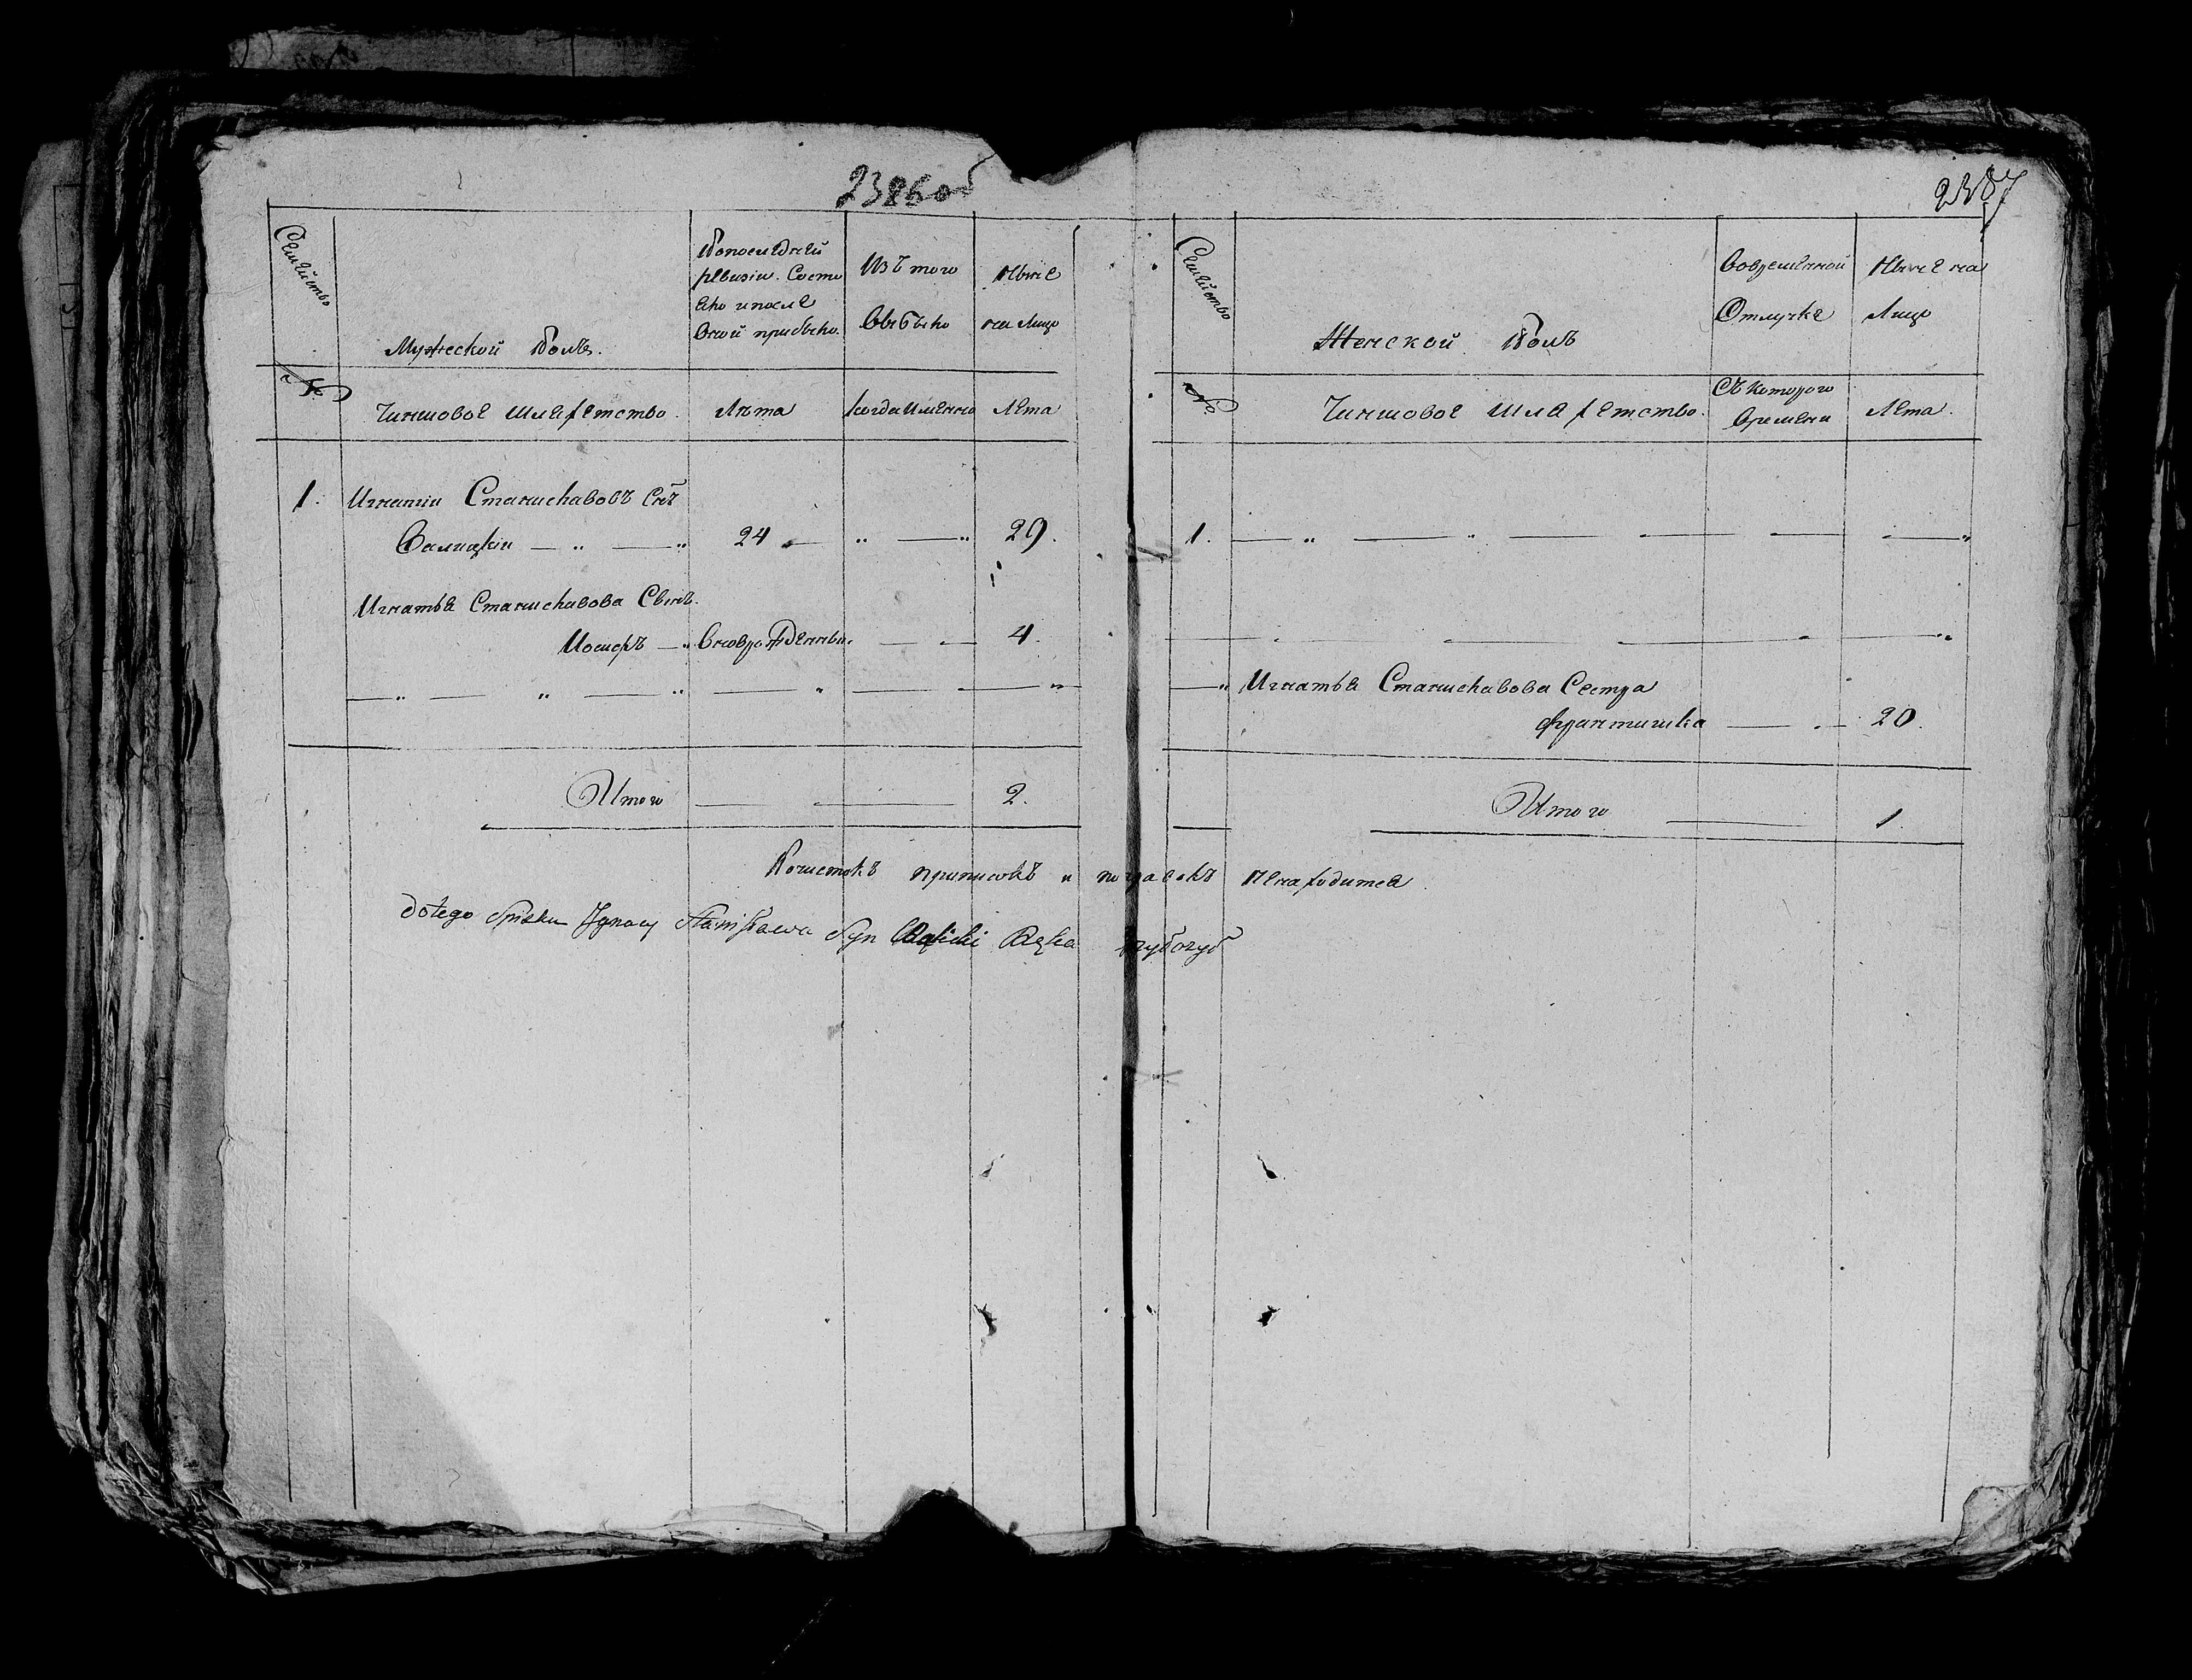 2386об
2387
Семейство
Мужеской Полъ.
Попоследней
ревизiи. Состо
яло ипосле
оной прибыло.
Изъ того
Выбыло
Ныне
на Лицо
№
Чиншовое шляхетство.
Лѣта
когда Имянно
Лета
1. Игнатiи Станиславовъ Снъ
Валицкiи — „ — „ 24 — „ — „ 29.
Игнатья Станиславова Сынъ.
Иосифъ — „ Вновьрожденныи. — — 4.
— „ — „ — „ — „ — — „
Итого — — 2.
Семейство
Женской Полъ
Вовременной
Отлучке
Ныне на
Лицо
№
Чиншовое шляхетство.
Съ Которого
Времени
Лета.
1. — „ — „ — — — — „
— — — — „
— „ Игнатья Станиславова Сестра
Франтишка — — 20.
Итого — 1.
Почистокъ приписокъ и поправокъ ненаходится
do tego Spisku Ignacy Stanisława Syn Walicki Ręką